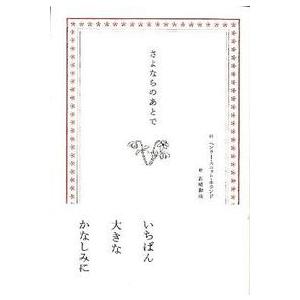 さよならのあとで
詩 ヘンリー・スコット・ホランド
絵 高橋和枝
いちばん
大きな
かなしみに